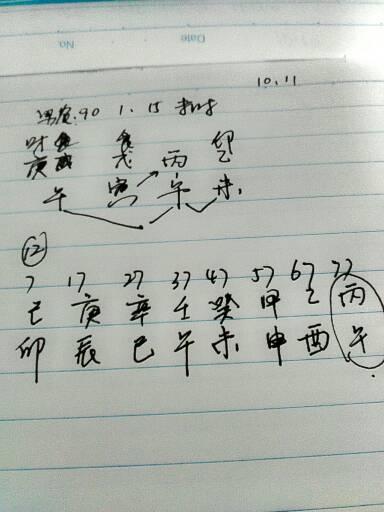 No. Date
10.11
男农.90 1.15 未时
财 食 印
庚 戊 丙 乙
午 寅 午 未
⑫
7 17 27 37 47 57 67 77
己 庚 辛 壬 癸 甲 乙 丙
卯 辰 巳 午 未 申 酉 午